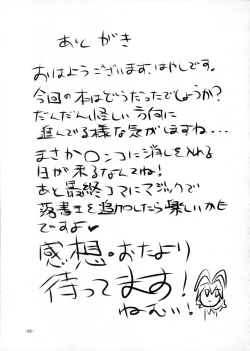 あとがき
おはようございます、はやしです。
今回の本はどうだったでしょうか?
だんだん怪しい方向に
進んでる様な気がしますね...
まさか〇ンコに消しを入れる
日が来るなんてね!
あと最終コマにマジックで
落書きを追加したら楽しいかも
ですよ♥
感想・おたより
待ってます!
ねえぃ!
-39-